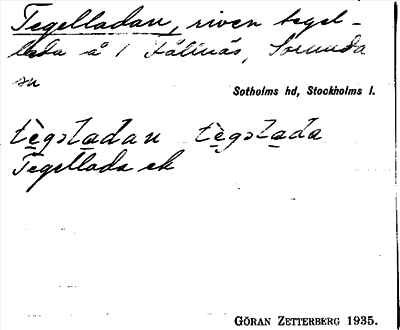 Tegelladan, riven tegel-
lada å 1 Fållnäs, Sorunda
sn
Sotholms hd, Stockholms l.
tè̤gəLa̤dan tè̤gəLa̤da
Tegellada ek
GÖRAN ZETTERBERG 1935.